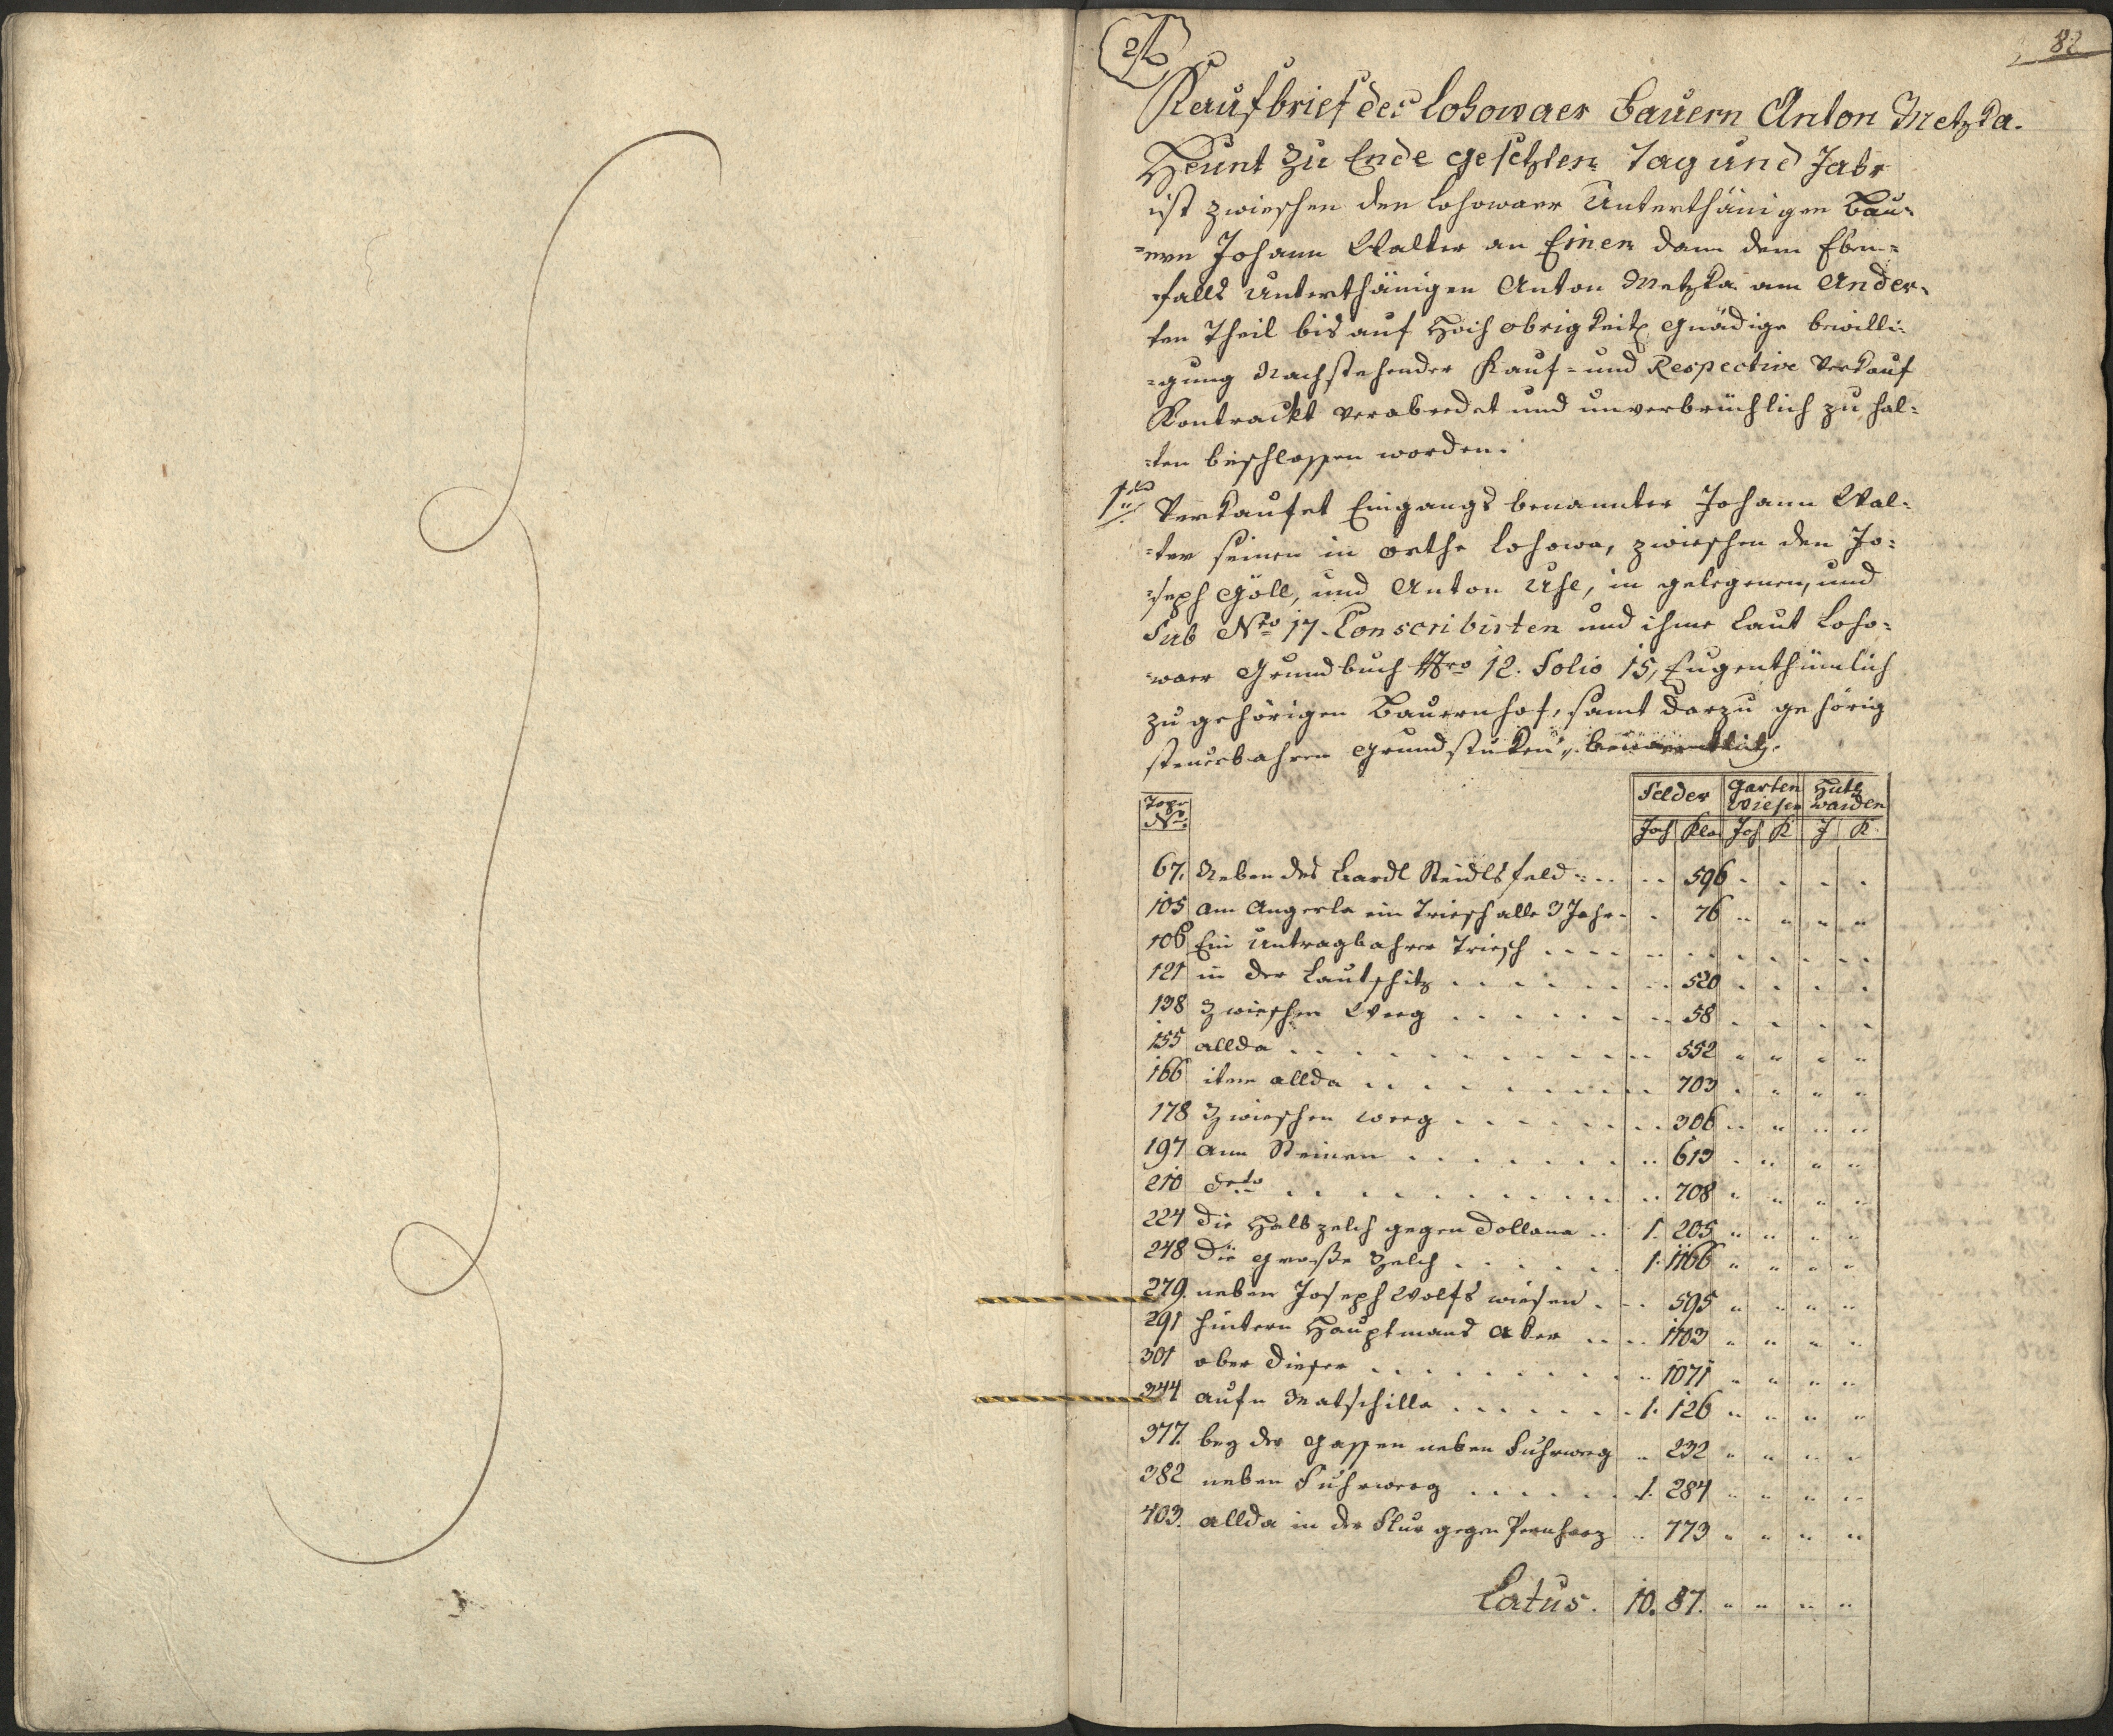 82
Kaufbrief des Lohowaer Bauern Anton Metzka.
Heunt zu Ende gesetzten Tag und Jahr
ist zwieschen den Lohowaer Unterthänigen Bau-
-ern Johann Walter an Einen dann dem Eben-
-falls Unterthänigen Anton Metzka am Ander-
ten Theil bis auf Hoch obrigkeitl. gnädige bewilli-
-gung Nachstehender Kauf- und Respective Verkauf
Kontrackt verabredet und unverbrüchlich zu hal-
-ten beschlossen worden.
1tens Verkaufet Eingangs benannter Johann Wal-
-ter seinen in orthe Lohowa, zwieschen den Jo-
-seph Göll, und Anton Uhl, in gelegenen, und
Sub Nro 17. Conscribirten und ihme Laut Loho-
-waer Grundbuch Nro 12. Folio 15, Eugenthümlich
zu gehörigen Bauernhof, samt darzu gehörig
steuerbahren Grundstuken, benanntlich.
Topo Nro. Felder Garten Wiesen Hutwaiden
Joch Kla. Joch K J K
67. Neben des Hardl Steidls feld 596
105 am Angerle ein Triesch alle 3 Jahr 76
106 Ein Untragbahrer Triesch
121 in der Lautschitz 520
138 Zwieschen Weeg 58
155 allda 552
166 item allda 703
178 Zwieschen weeg 306
197 ann Steinen 613
210 detto 708
224 die Halb zelch gegen Dollana 1. 205
248 Die große Zelch 1. 1166
279. neben Joseph Wolfs wiesen 595
291 hintern Hauptmans Aker 1103
301 ober dieser 1071
344 aufn Matschilla 1. 126
377. bey der Gassen neben Fuhrweeg 232
382 neben Fuhrweeg 1. 284
403. allda in der Flur gegen Pernharz 773
Latus. 10. 87.